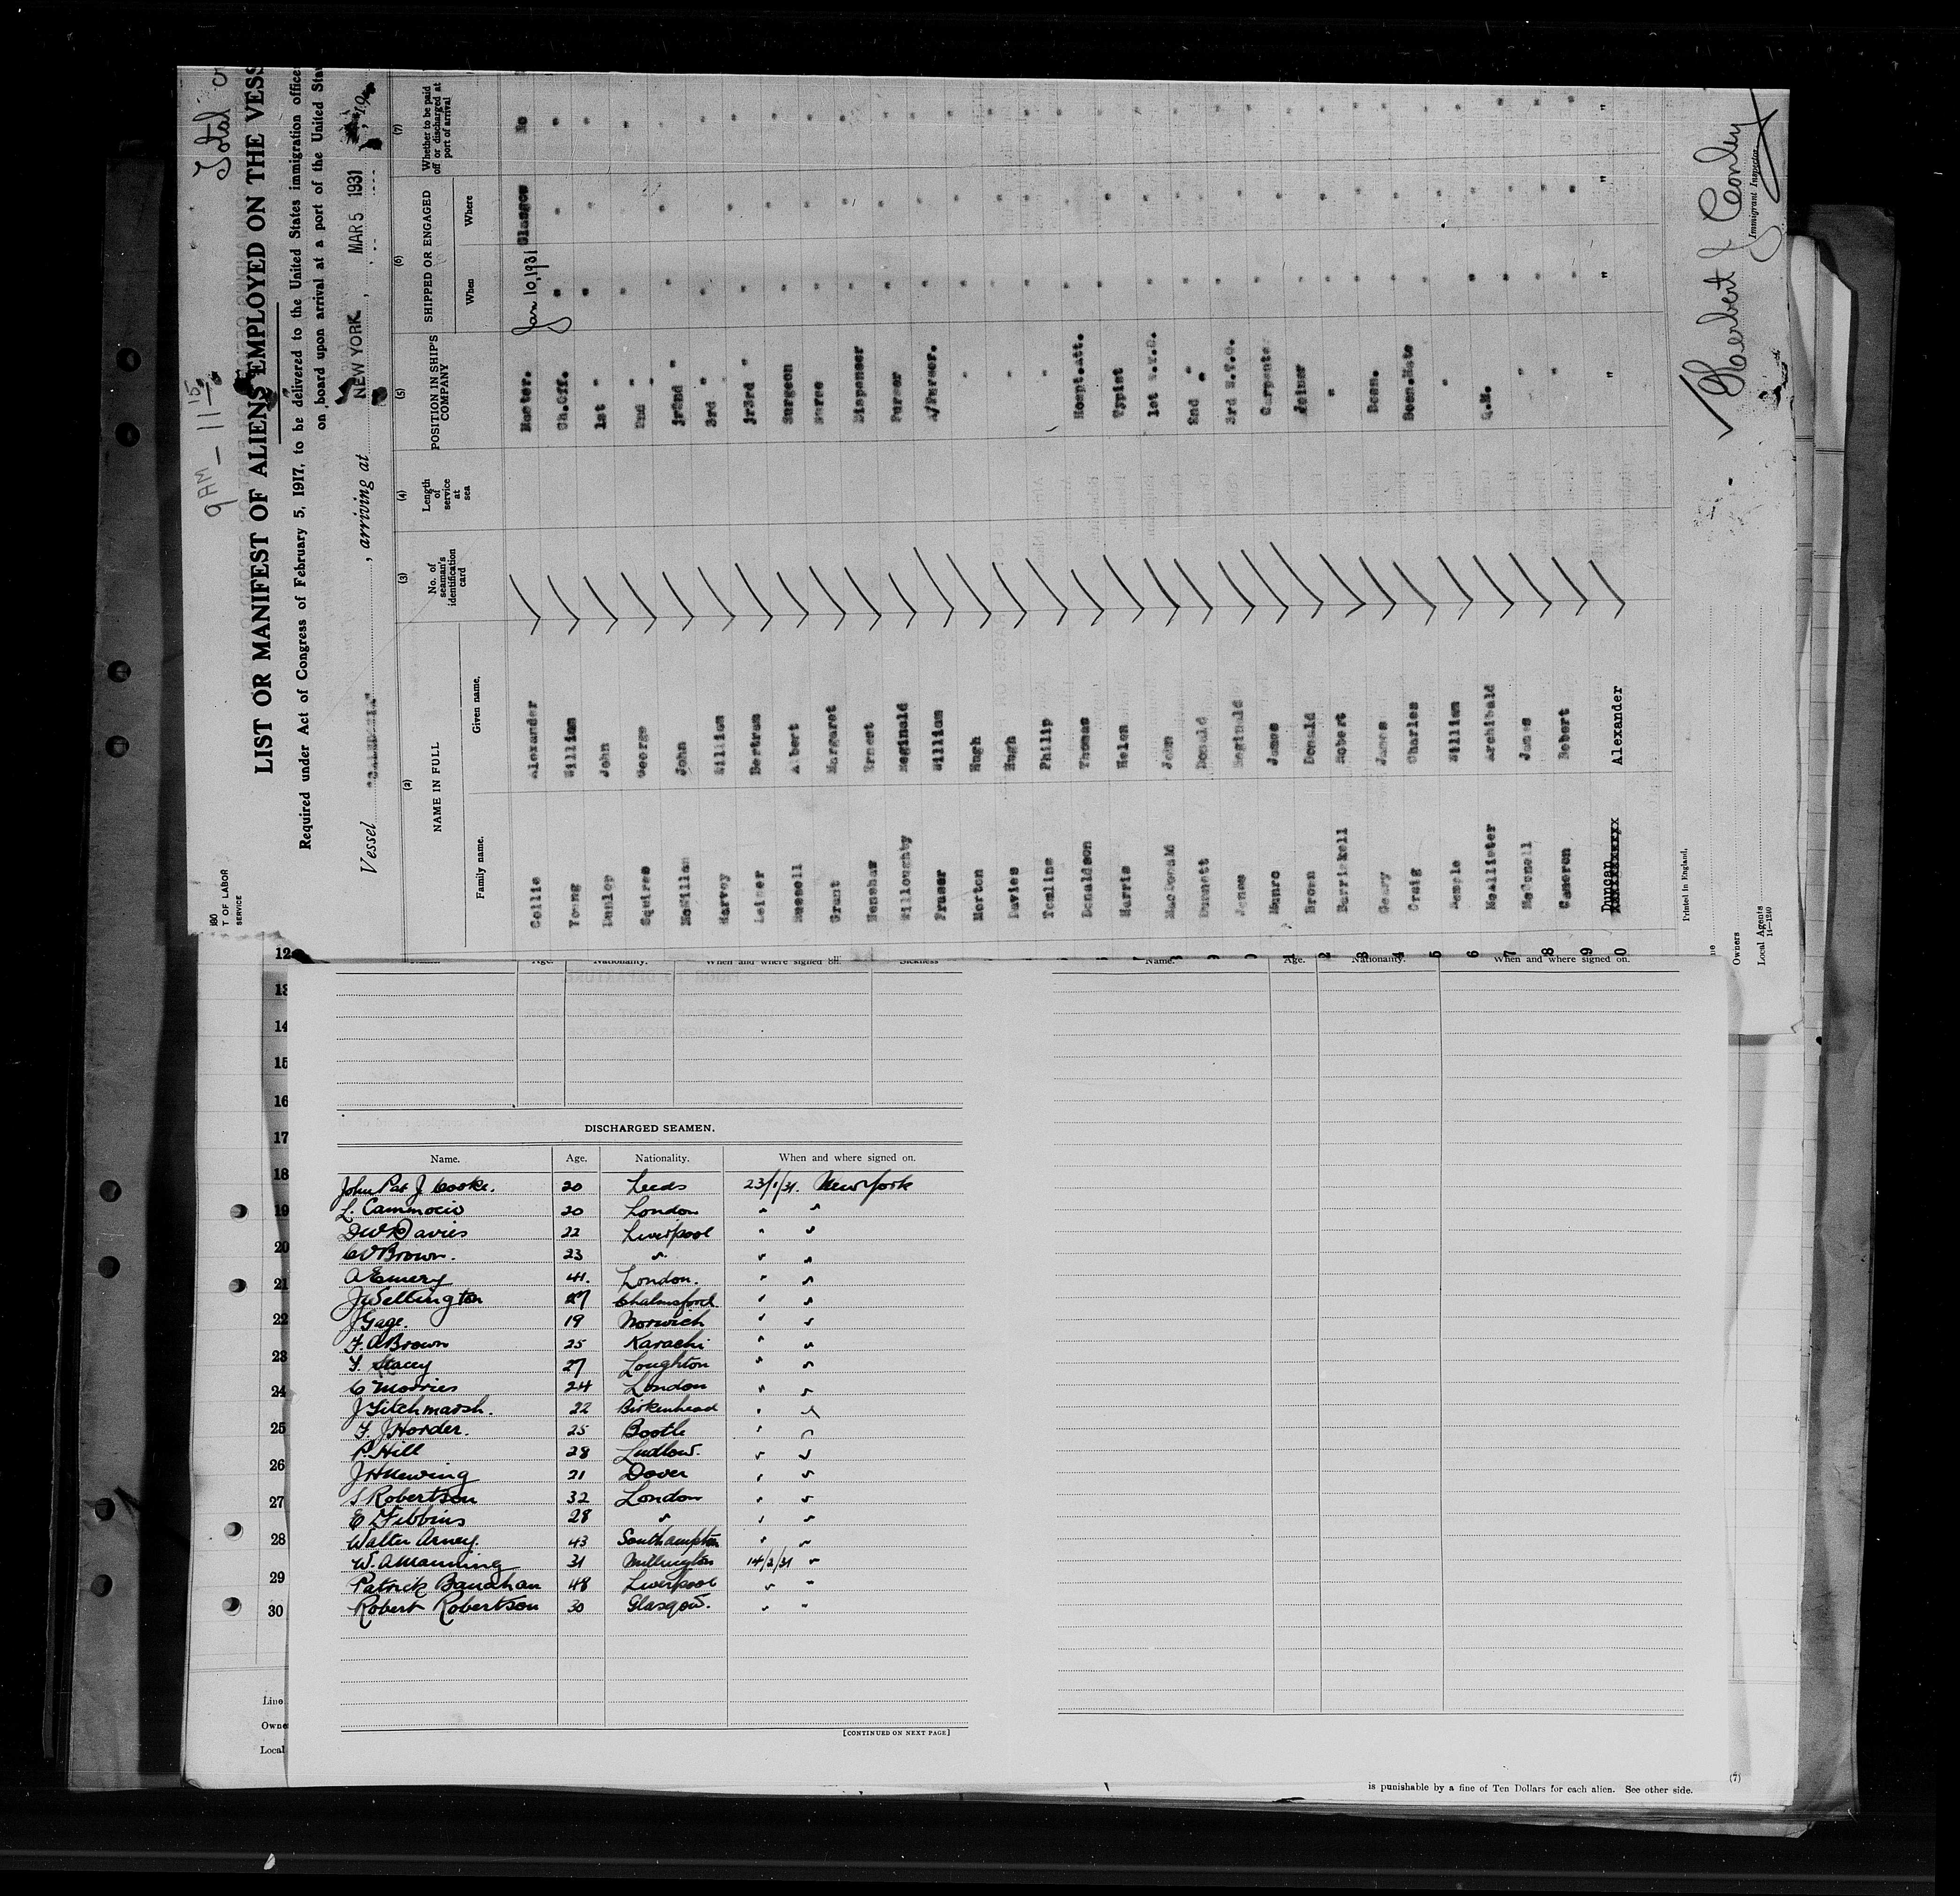 Total
9 AM — 11 15
LIST OR MANIFEST OF ALIENS EMPLOYED ON THE VESS
Required under Act of Congress of February 5, 1917, to be delivered to the United States immigration office
on board upon arrival at a port of the United Sta
Vessel "CALEDONIA", arriving at NEW YORK, MAR 5 1931, 19
180
T OF LABOR
SERVICE
(2) (3) (4) (5) (6) (7)
NAME IN FULL No. of seaman's identification card Length of service at sea POSITION IN SHIP'S COMPANY SHIPPED OR ENGAGED Whether to be paid off or discharged at port of arrival
Family name. Given name. When Where
Collie Alexander Master. Jan 10, 1931 Glasgow No
Young William Ch.Off. " " "
Dunlop John 1st " " " "
Squires George 2nd " " " "
McMillan John jr2nd " " " "
Harvey William 3rd " " " "
Leiper Bertram jr3rd " " " "
Russell Albert Surgeon " " "
Grant Margaret Nurse " " "
Henshaw Ernest Dispenser " " "
Willoughby Reginald Purser " " "
Fraser William A/Purser. " " "
Morton Hugh " " " "
Davies Hugh " " " "
Tomlins Philip " " " "
Donaldson Thomas Hospt.Att. " " "
Harris Helen Typist " " "
MacDonald John 1st W.T.O. " " "
Dunnett Donald 2nd " " " "
Jones Reginald 3rd W.T.O. " " "
Munro James Carpenter " " "
Brown Donald Joiner " " "
Barriskell Robert " " " "
Geary James Bosn. " " "
Craig Charles Bosn.Mate " " "
Semple William " " " "
McAllister Archibald Q.M. " " "
McConell James " " " "
Cameron Robert " " " "
Duncan Alexander " " " "
Printed in England.
Owners
Local Agents
14—1240
Herbert J Conley
Immigrant Inspector.
12
13
14
15
16
17
18
19
20
21
22
23
24
25
26
27
28
29
30
Line
Owne
Local
Name. Age. Nationality. When and where signed on. Sickness
DISCHARGED SEAMEN.
Name. Age. Nationality. When and where signed on.
John Pat J Cooke. 20 Leeds 23/1/31. New York
L. Cammocio 20 London " "
D W Davies 22 Liverpool " "
C V Brown. 23 " " "
A Emery 41. London. " "
J Wellington 27 Chalmsford " "
J Gage. 19 Norwich " "
F. A Brown 25 Karachi " "
F. Stacey 27 Loughton " "
C Morries 24 London " "
J Titchmarsh. 22 Birkenhead " "
F. J Horder. 25 Bootle " "
P. Hill 28 Ludlow. " "
J H Newing 21 Dover " "
S Robertson 32 London " "
E Fibbins 28 " " "
Walter Arney. 43 Southampton " "
W. A Manning 31 14/2/31 "
Patrick Banahan 48 Liverpool " "
Robert Robertson 30 Glasgow. " "
[CONTINUED ON NEXT PAGE]
Name. Age. Nationality. When and where signed on.
(7)
is punishable by a fine of Ten Dollars for each alien. See other side.